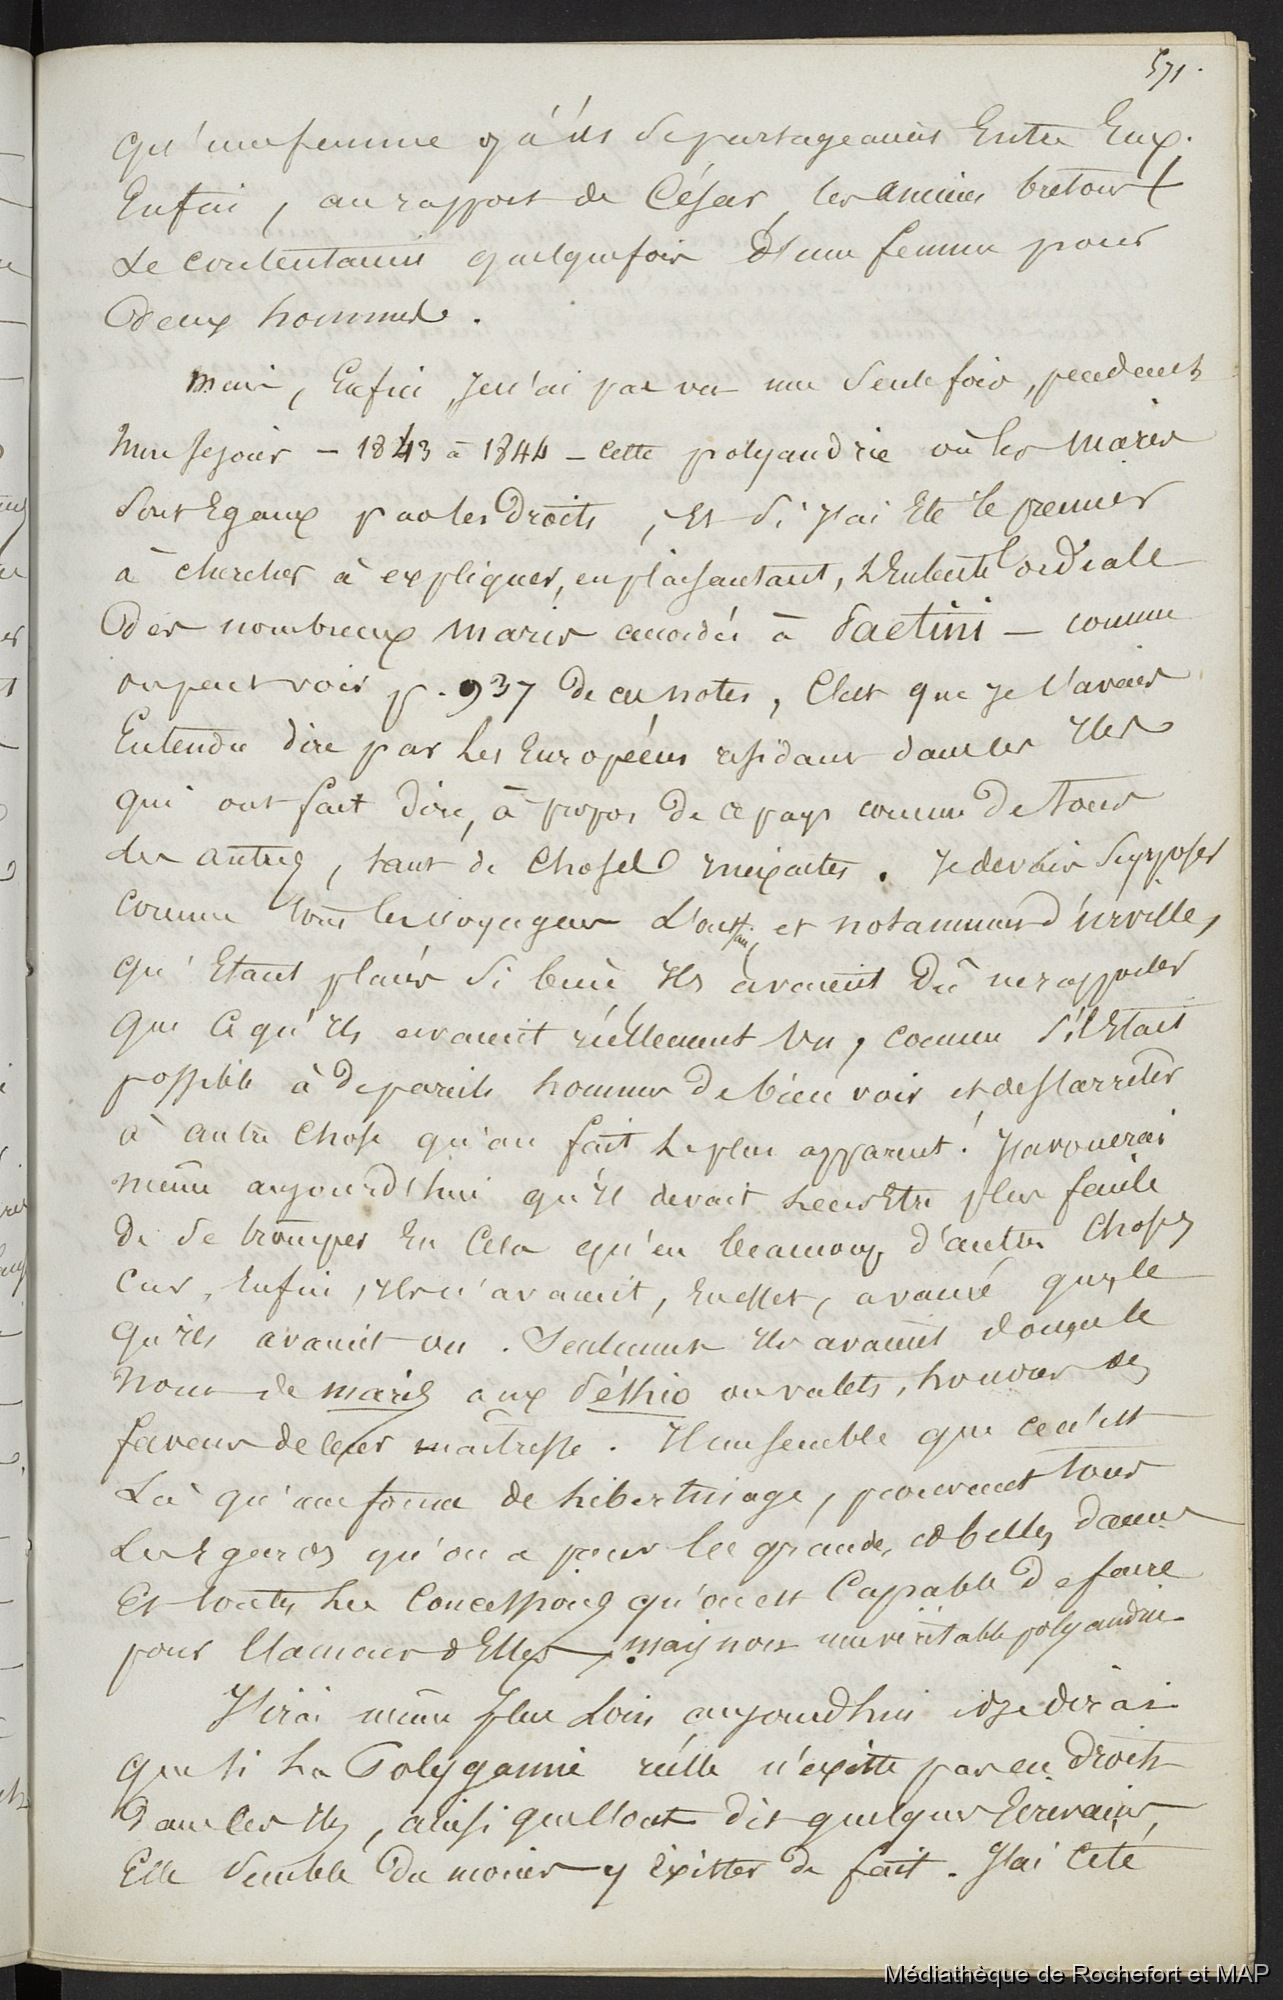 571.
qu'une femme qu'ils se partageaient Entre Eux.
Enfin, au rapport de César, les anciens bretons
se contentaient quelquefois d'une femme pour
deux hommes.
mais, Enfin, je n'ai pas vu une seule fois, pendant
mon séjour - 1843 à 1844 - cette polyandrie où les maris
sont Egaux par les droits, Et si j'ai Eté le premier
à chercher à expliquer, en plaisantant, l'Entente cordiale
des nombreux maris accordés à Paetini - comme
on peut voir p. 937 de ces notes, C'est que je l'avais
Entendu dire par les Européens résidant dans les Iles
qui ont fait dire, à propos de ce pays comme de tous
les autres, tant de choses inexactes. Je devais supposer
comme tous les voyageurs et notamment d'urville,
qu'Etant placés si bien Ils avaient dû ne rapporter
que ce qu'Ils avaient réellement vu, comme s'il Etait
possible à de pareils hommes de bien voir et de s'arrêter
à autre chose qu'au fait le plus apparent! J'avouerai
même aujourd'hui qu'Il devait leur Etre plus facile
de se tromper En Cela qu'en beaucoup d'autres choses
car, Enfin, Ils n'avaient, En effet, avancé que le
qu'ils avaient vu. Seulement Ils avaient donné le
nom de maris aux Péhio ou valets, honorés des
faveurs de leur maîtresse. Il me semble que ce n'est
là qu'une forme de libertinage, prouvant tous
les Egards qu'on a pour les grandes et belles dames
Et toutes les Concessions qu'on est Capable de faire
pour l'amour d'Elles, mais non une véritable polyandrie.
J'irai même plus loin aujourd'hui et je dirai
que si la Polygamie réelle n'existe pas en droit
dans les Iles, ainsi que l'ont dit quelques Ecrivains,
Elle semble du moins y Exister de fait. J'ai Cité
Médiathèque de Rochefort et MAP